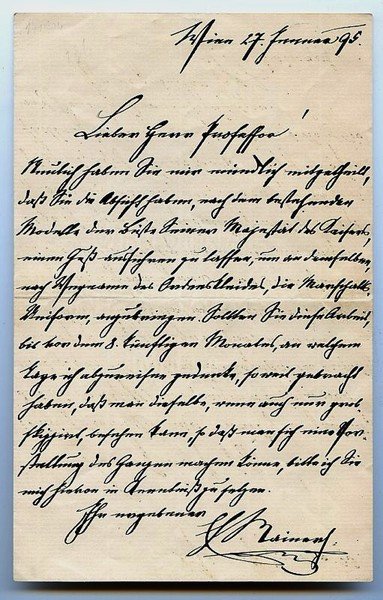 Wien 27. Jänner 95.
Lieber Herr Professor
Neulich haben Sie mir mündlich mitgetheilt,
daß Sie die Absicht haben, nach dem bestehenden
Modelle der Büste Seiner Majestät des Kaisers,
einen Guß anfertigen zu lassen, um an demselben,
nach Wegname des Ordenskleides, die Marschalls
Uniform, anzubringen. Sollten Sie diese Arbeit,
bis vor dem 8. künftigen Monates, an welchem
Tage ich abzureisen gedenke, so weit gebracht
haben, daß man dieselbe, wenn auch nur
skizzirt, besehen kann, so daß man sich eine Vor-
stellung des Ganzen machen könne, bitte ich Sie
mich hievon in Kenntniß zu setzen.
Ihr ergebener
Rainer